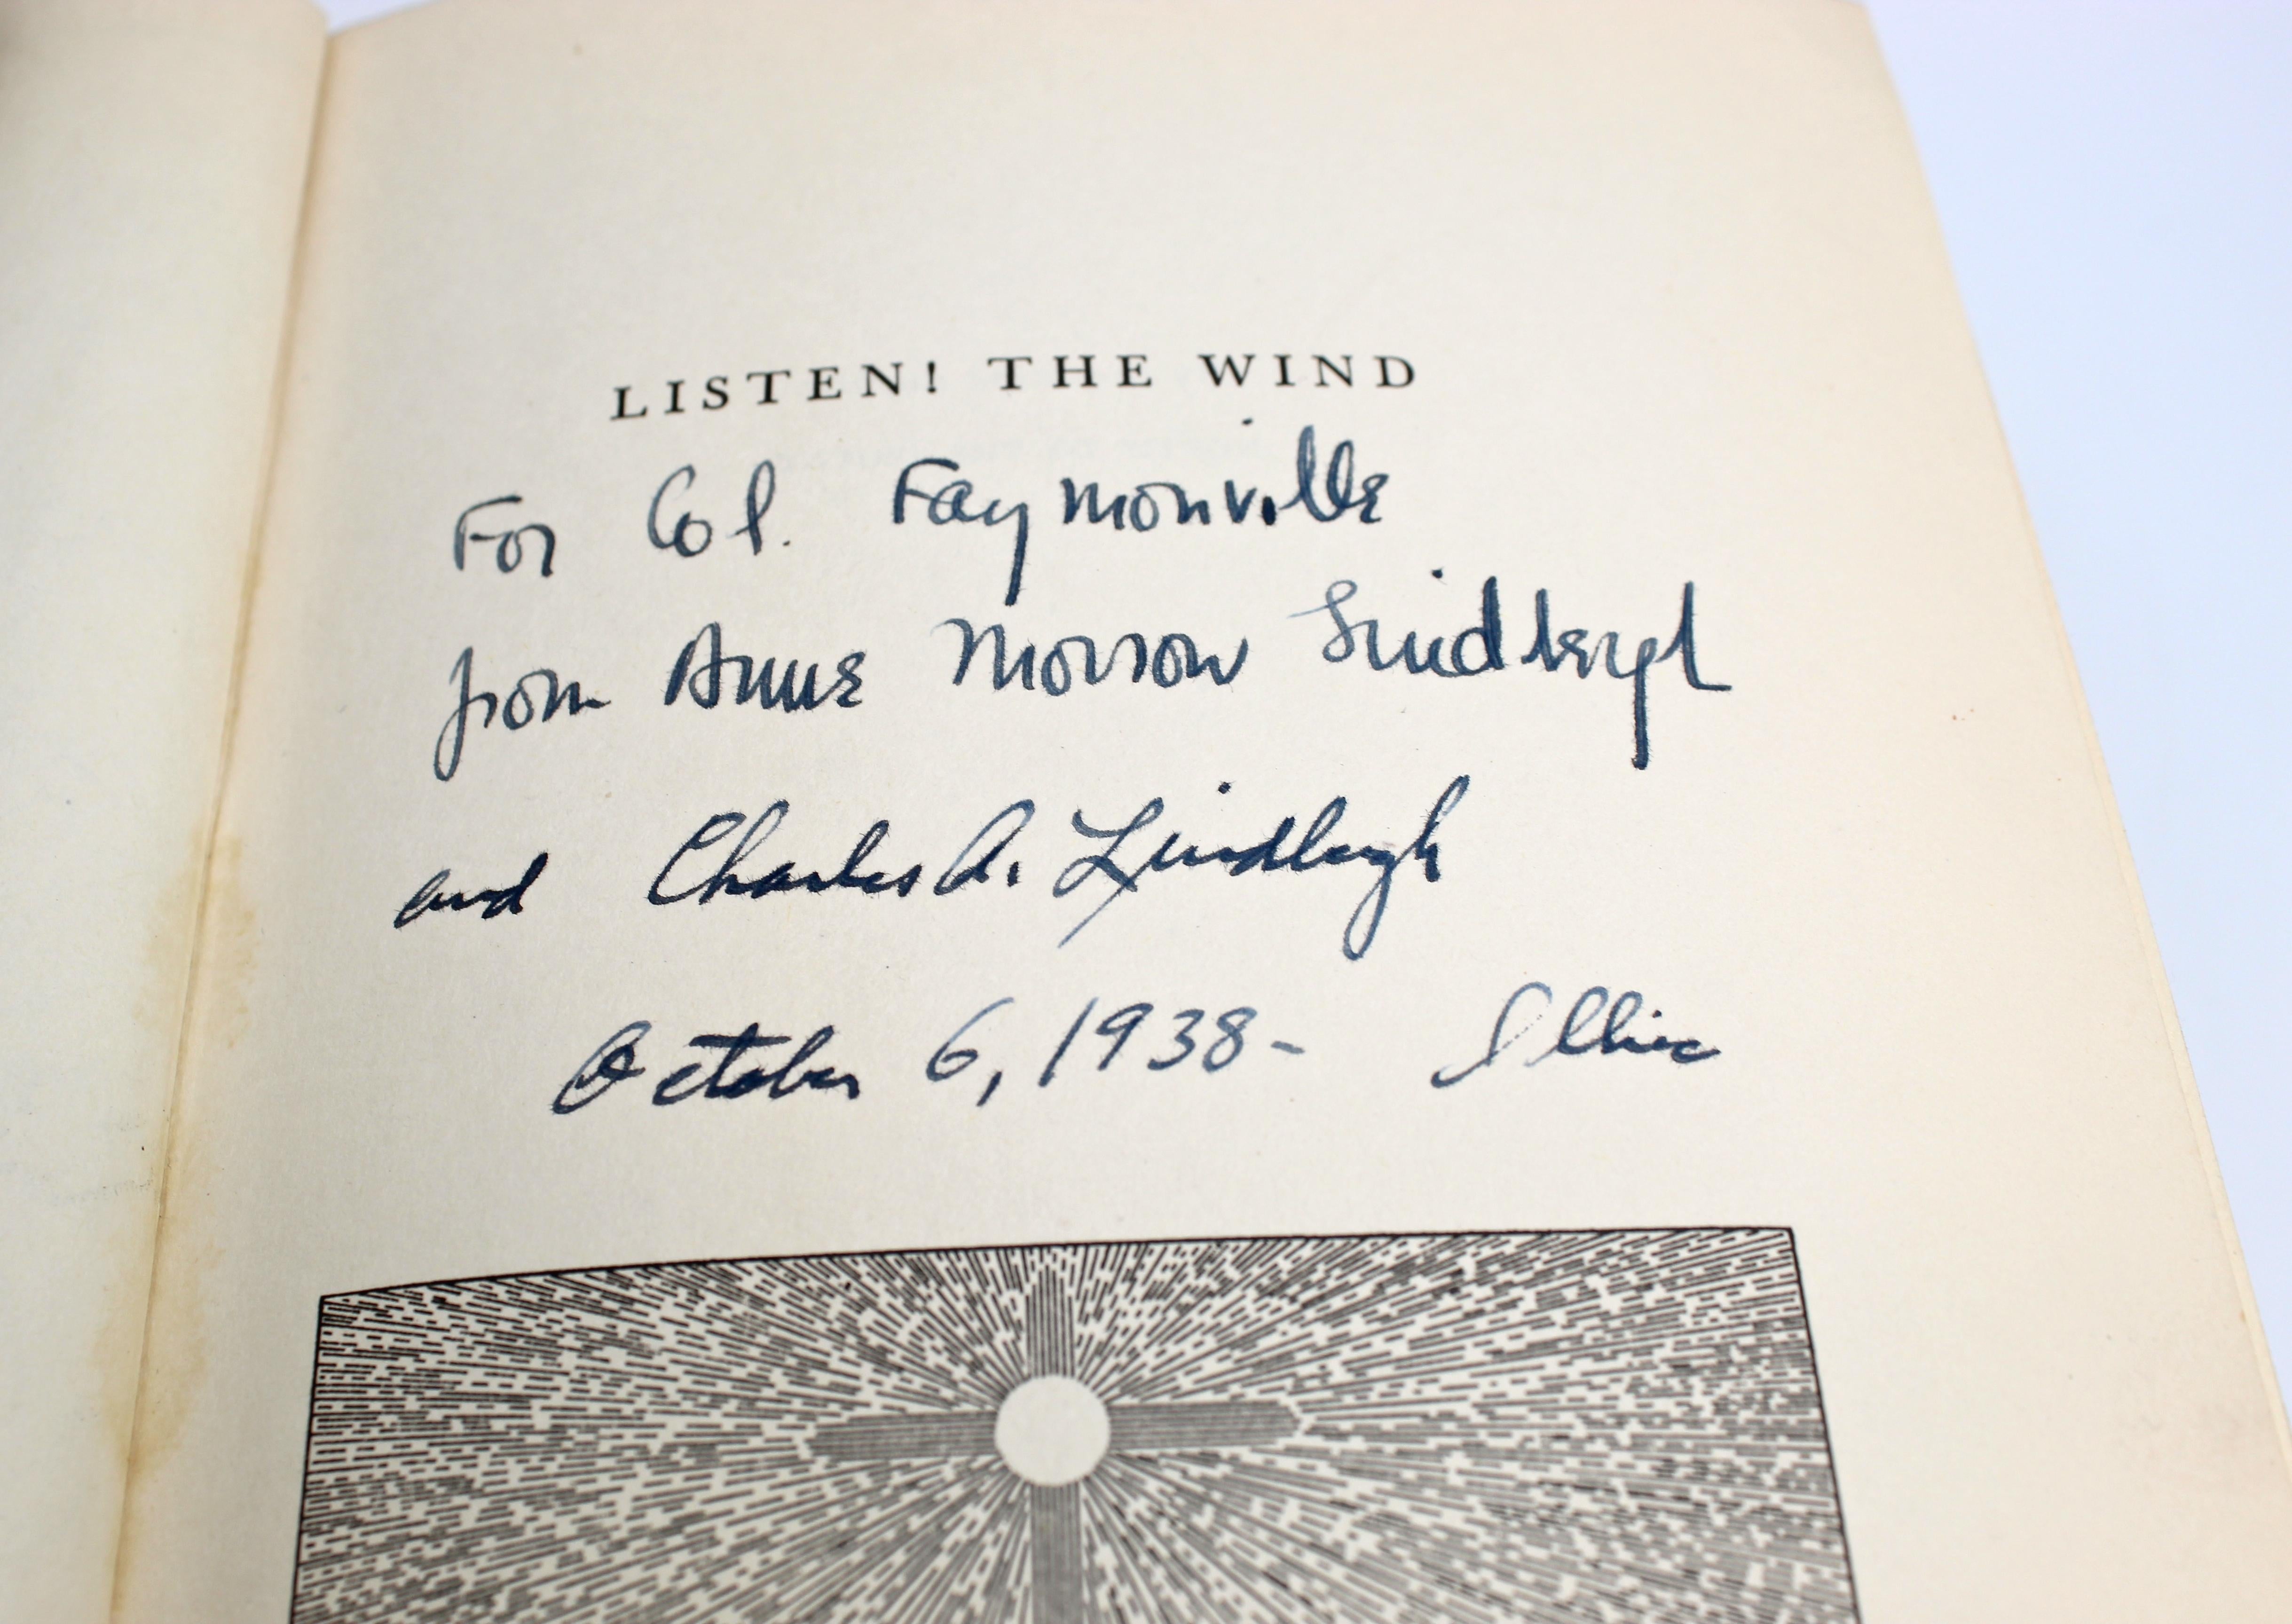 LISTEN! THE WIND
For Col. Faymonville
from Anne Morrow Lindbergh
and Charles A. Lindbergh
October 6, 1938- Illiec